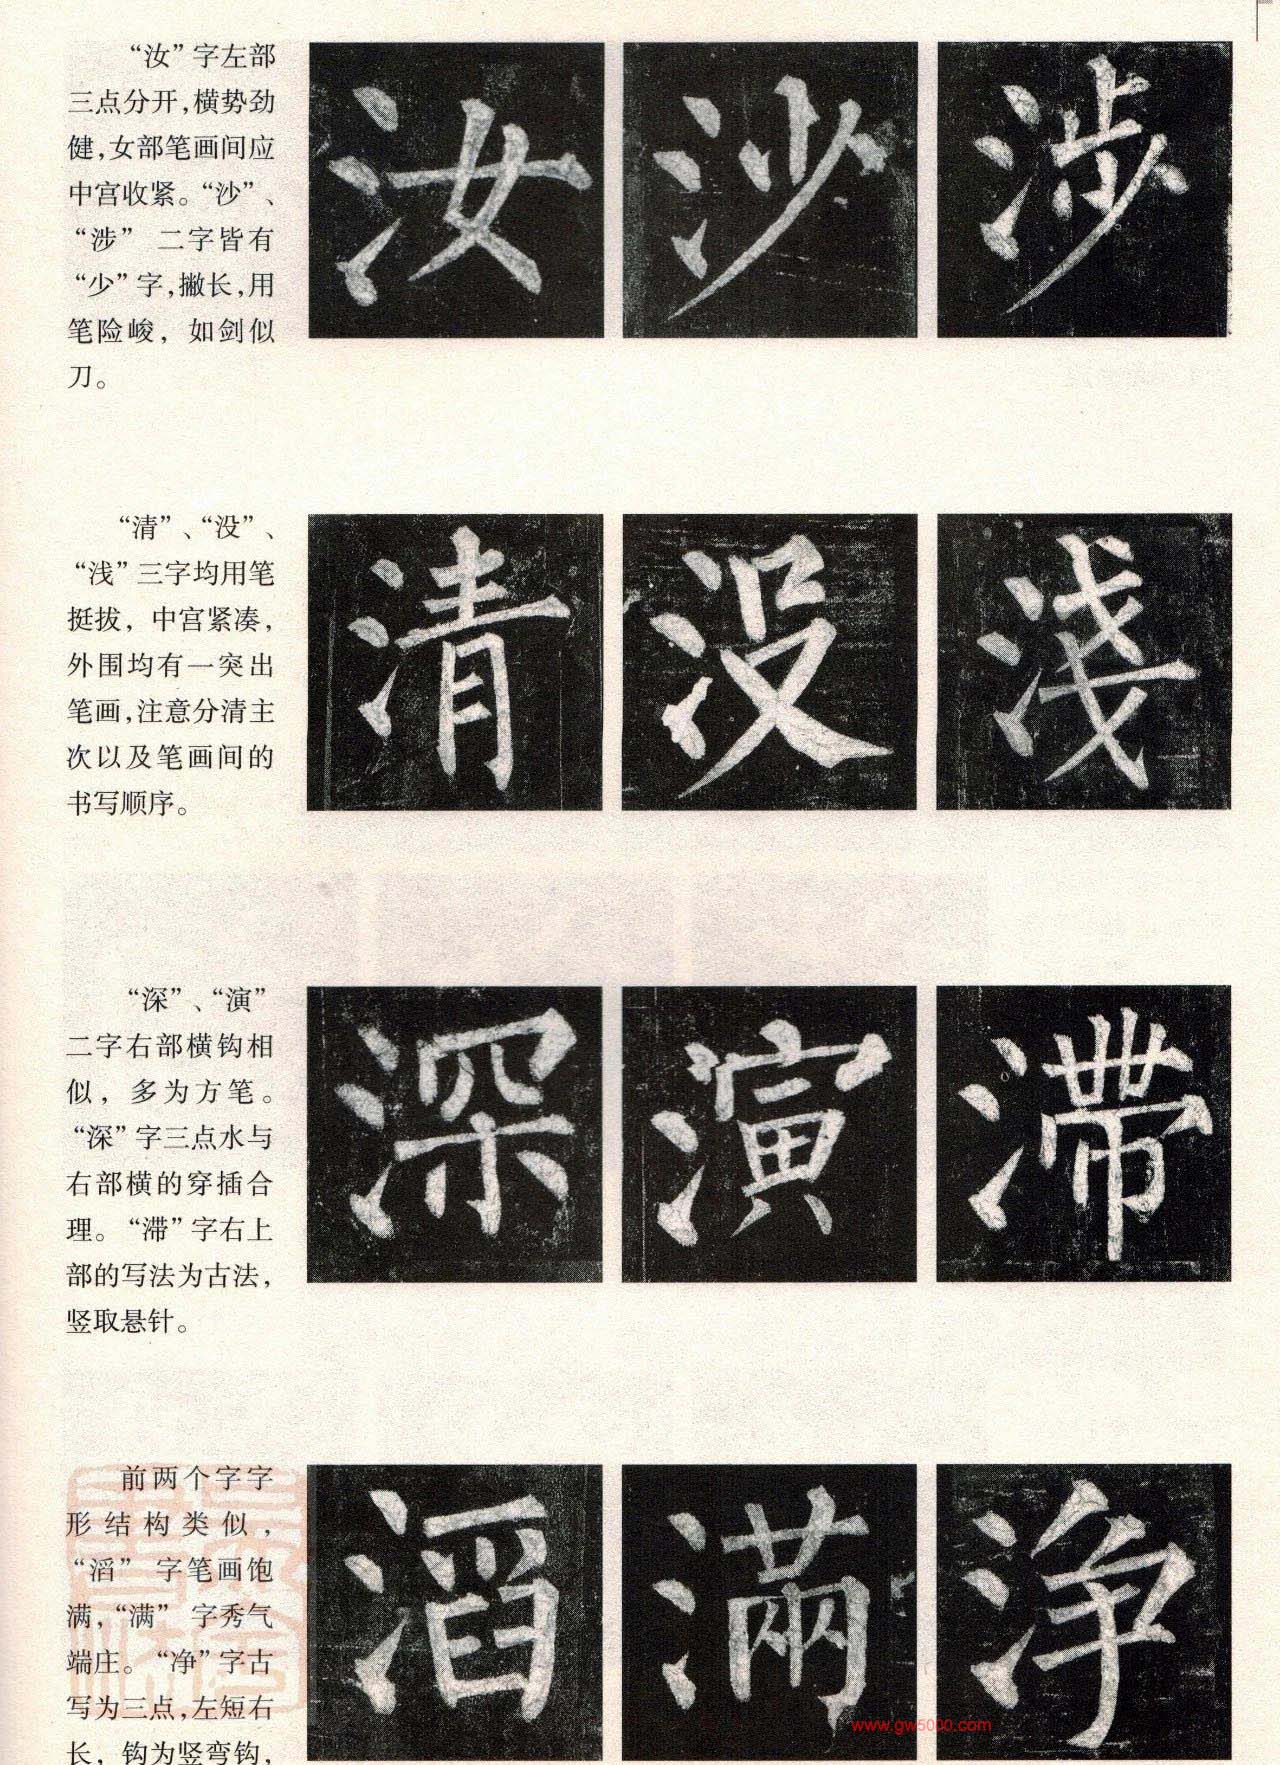 “汝”字左部
三点分开，横势劲
健，女部笔画间应
中宫收紧。“沙”、
“涉”二字皆有
“少”字，撇长，用
笔险峻，如剑似
刀。
汝 沙 涉
“清”、“没”、
“浅”三字均用笔
挺拔，中宫紧凑，
外围均有一突出
笔画，注意分清主
次以及笔画间的
书写顺序。
清 没 淺
“深”、“演”
二字右部横钩相
似，多为方笔。
“深”字三点水与
右部横的穿插合
理。“滞”字右上
部的写法为古法，
竖取悬针。
深 演 滯
前两个字字
形结构类似，
“滔”字笔画饱
满，“满”字秀气
端庄。“净”字古
写为三点，左短右
长，钩为竖弯钩，
滔 滿 淨
www.gw5000.com